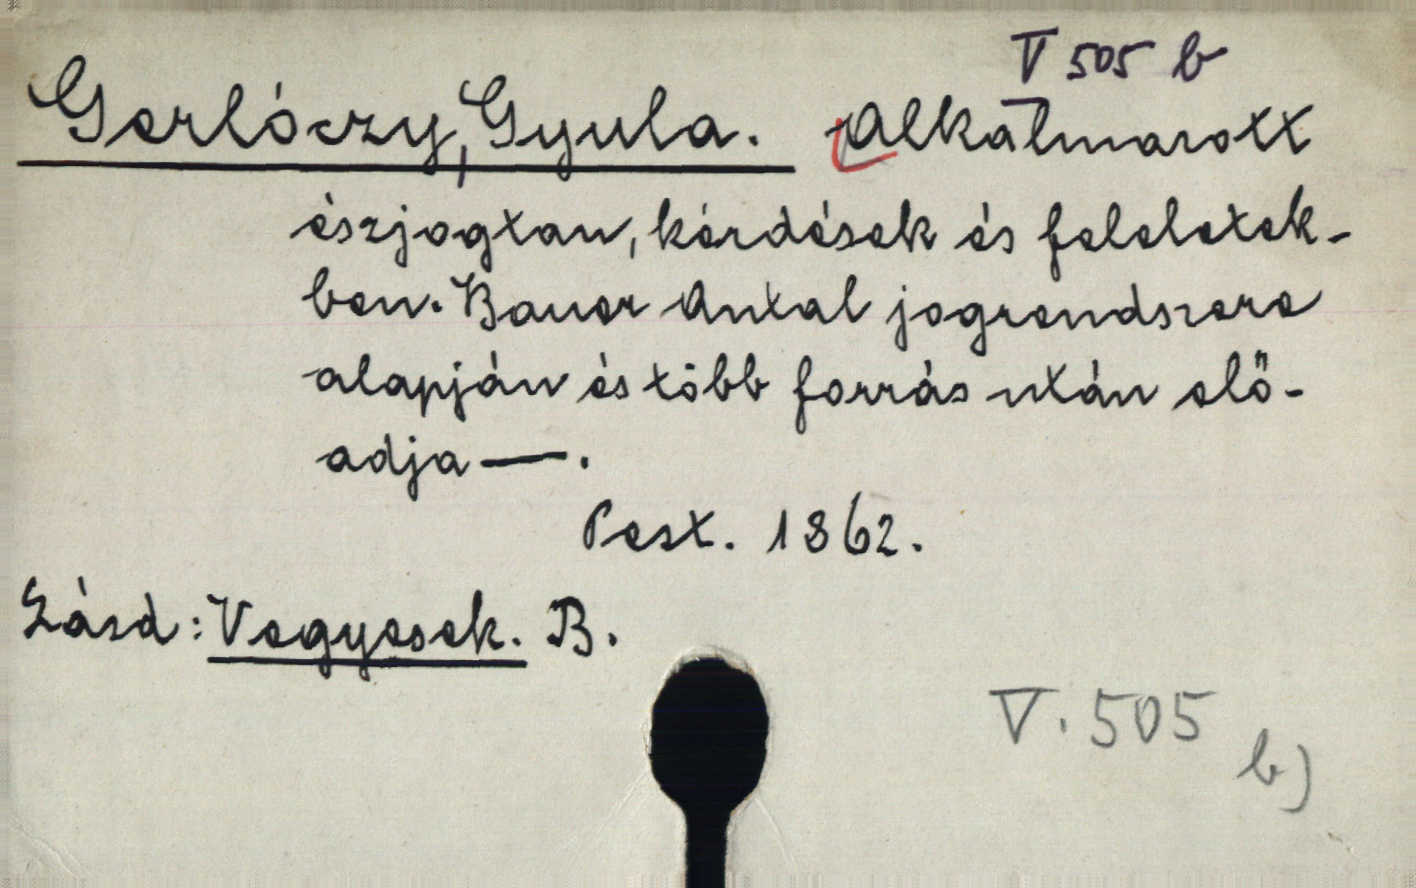 V 505 b
Gerlóczy, Gyula. Alkalmazott
észjogtan, kérdések és feleletek-
ben. Bauer Antal jogrendszere
alapján és több forrás után elő-
adja —.
Pest. 1862.
Lásd: Vegyesek. B.
V. 505
b)